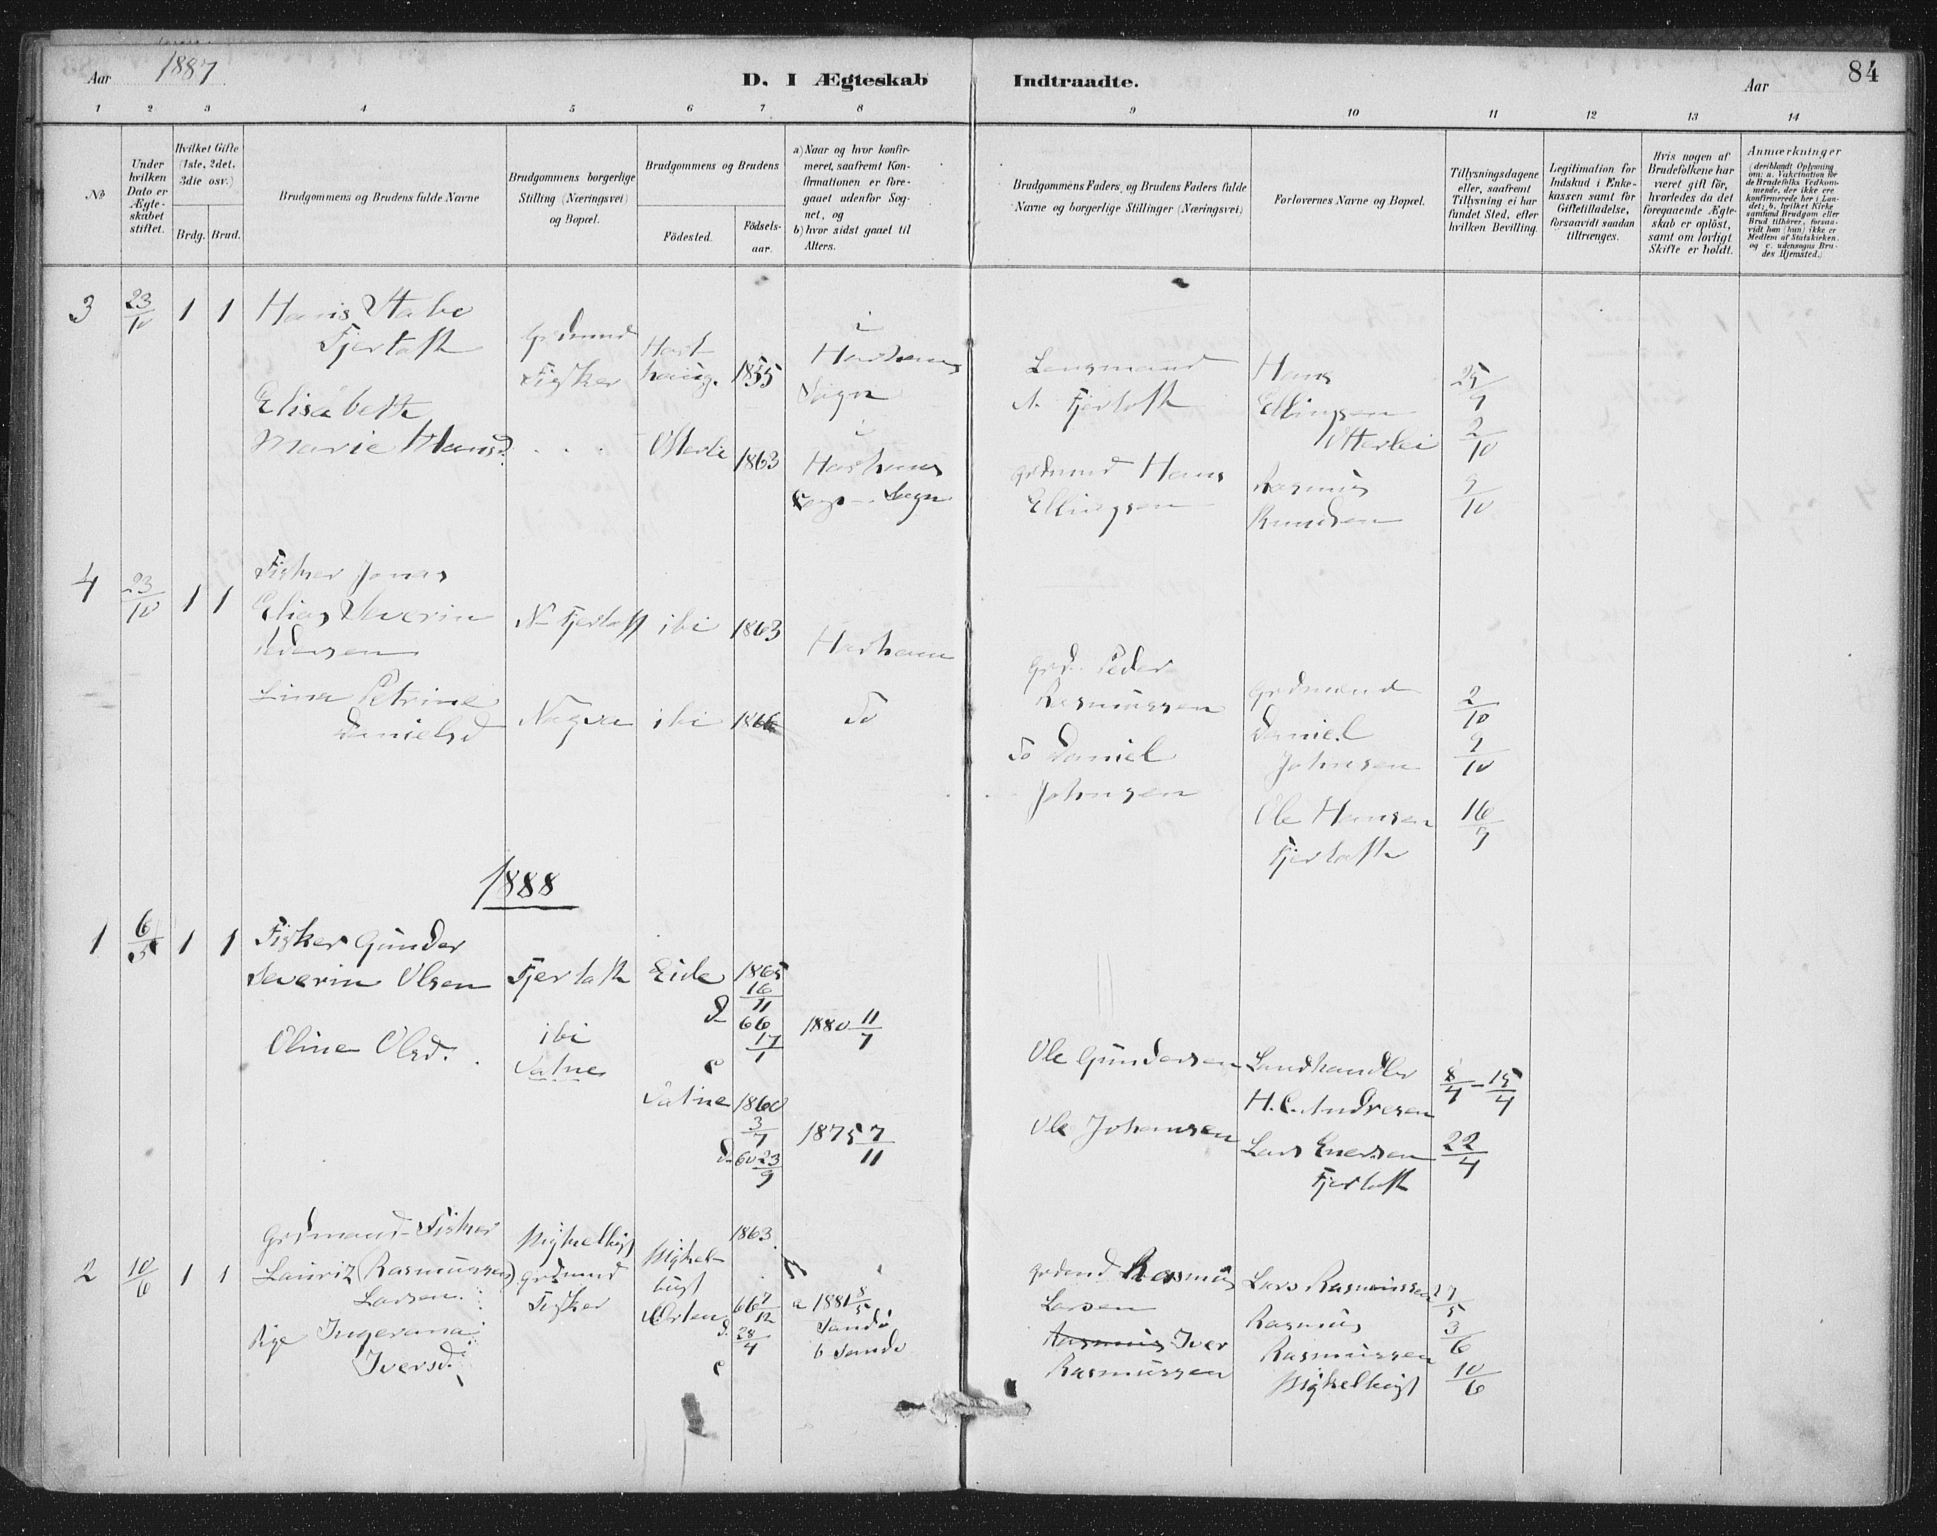 Aar 1887
D. I Ægteskab Indtraadte.
Aar
84
1 2 3 4 5 6 7 8 9 10 11 12 13 14
No
Under hvilken Dato er Ægteskabet stiftet.
Hvilket Gifte (1ste, 2det, 3die osv.)
Brdg. Brud.
Brudgommens og Brudens fulde Navne
Brudgommens borgerlige Stilling (Næringsvei) og Bopæl.
Brudgommens og Brudens
Fødested.
Fødselsaar.
a) Naar og hvor konfirmeret, saafremt Konfirmationen er foregaaet udenfor Sognet, og
b) hvor sidst gaaet til Alters.
Brudgommens Faders, og Brudens Faders fulde Navne og borgerlige Stillinger (Næringsvei)
Forlovernes Navne og Bopæl.
Tillysningsdagene eller, saafremt Tillysning ei har fundet Sted, efter hvilken Bevilling.
Legitimation for Indskud i Enkekassen samt for Giftetilladelse, forsaavidt saadan tiltrænges.
Hvis nogen af Brudefolkene har været gift før, hvorledes da det foregaaende Ægteskab er opløst, samt om lovligt Skifte er holdt.
Anmærkninger
(deriblandt Oplysning om: a. Vakcination for de Brudefolks Vedkommende, der ikke ere konfirmerede her i Landet; b. hvilket Kirkesamfund Brudgom eller Brud tilhører, forsaavidt han (hun) ikke er Medlem af Statskirken, og c. udensogns Brudes Hjemsted.)
3 23/10 1 1 Hans Stabo
Fjertoft
Grdmand
Fisker
1855
i
Harhams
Sogn
N. Fjertoft
Hans
Ellingsen
Otterlei
25/9
2/10
9/10
Elisabeth
Marie Hansd.
Otterlei 1863
i
Harhams
Sogn
Grdmand Hans
Ellingsen
Rasmus
Knudsen
4 23/10 1 1 Fisker Jonas
Elias Severin
N. Fjertoft ibi 1863
Harham
Grd. Peder
Rasmussen
Grdmand
Daniel
Johnsen
2/10
9/10
Lina Petrine
Danielsd
ibi
Do
Do Daniel
Johnsen
Ole Hansen
Fjertoft
16/
1888
1 6/5 1 1 Fisker Gunder
Severin Olsen
Fjertoft Eide 1865
16/11
d 66
17/1
1880 11/7
Ole Gundersen
Landhandler
H. C. Andresen
8/4 - 15/4
Oline Olsd.
ibi
Vatne
e
Vatne 1860
3/7
d 60 23/9
1875 7/11
Ole Johansen
Lars Enersen
Fjertoft
22/4
2 10/6 1 1 Grdmand Fisker
Lauritz (Rasmussen)
Larsen.
Grdmand
Fisker
1863.
Grdmd Rasmus
Larsen
Lars Rasmussen
27/5
Pige Ingeranna
Iversd.
66 7/12
d. 28/4
e
a 1881 8/5
Sandø
b Sandø
Rasmus Iver
Rasmussen
Rasmus
Rasmussen
3/6
10/6